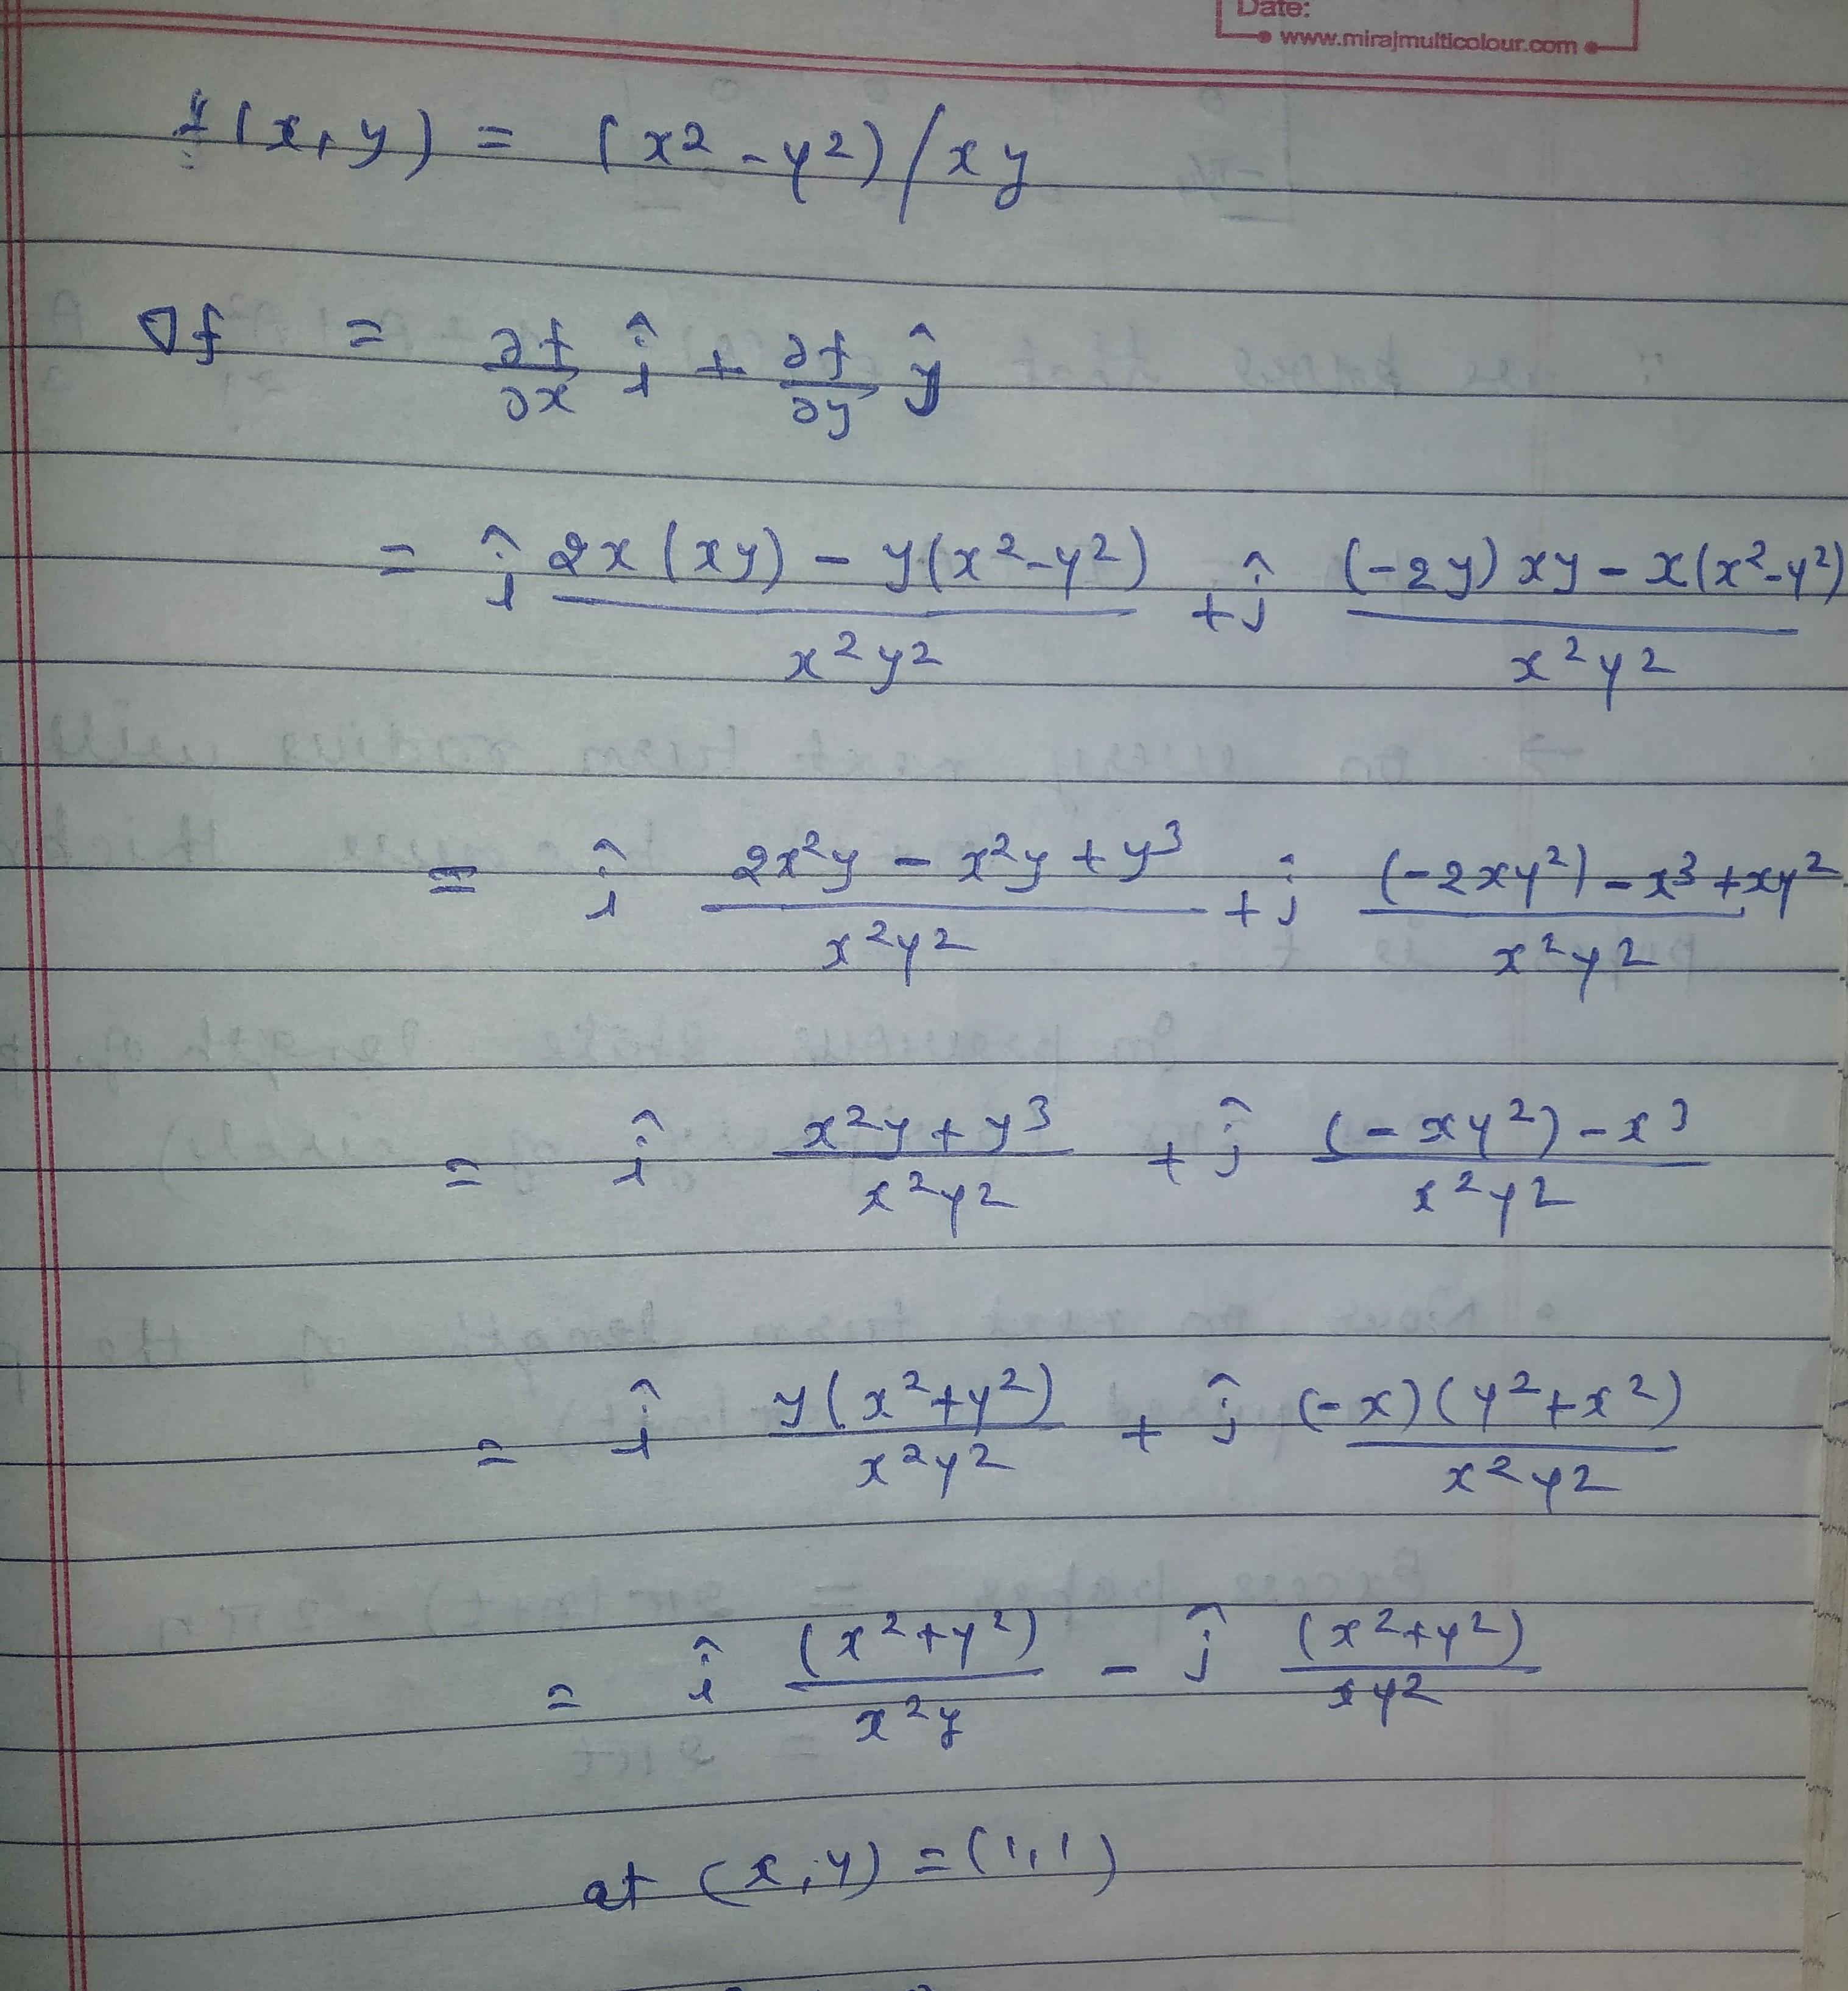 Date:
www.mirajmulticolour.com
f(x,y) = (x2-y2)/xy
∇f = ∂f/∂x î + ∂f/∂y ŷ
= î 2x(xy) - y(x²-y²)/x²y² + ĵ (-2y)xy - x(x²-y²)/x²y²
= î 2x²y - x²y + y³/x²y² + j (-2xy²) - x³ + xy²/x²y²
= î x²y + y³/x²y² + ĵ (-xy²) - x³/x²y²
= î y(x²+y²)/x²y² + ĵ (-x)(y²+x²)/x²y²
= î (x²+y²)/x²y - ĵ (x²+y²)/xy²
at (x,y) = (1,1)